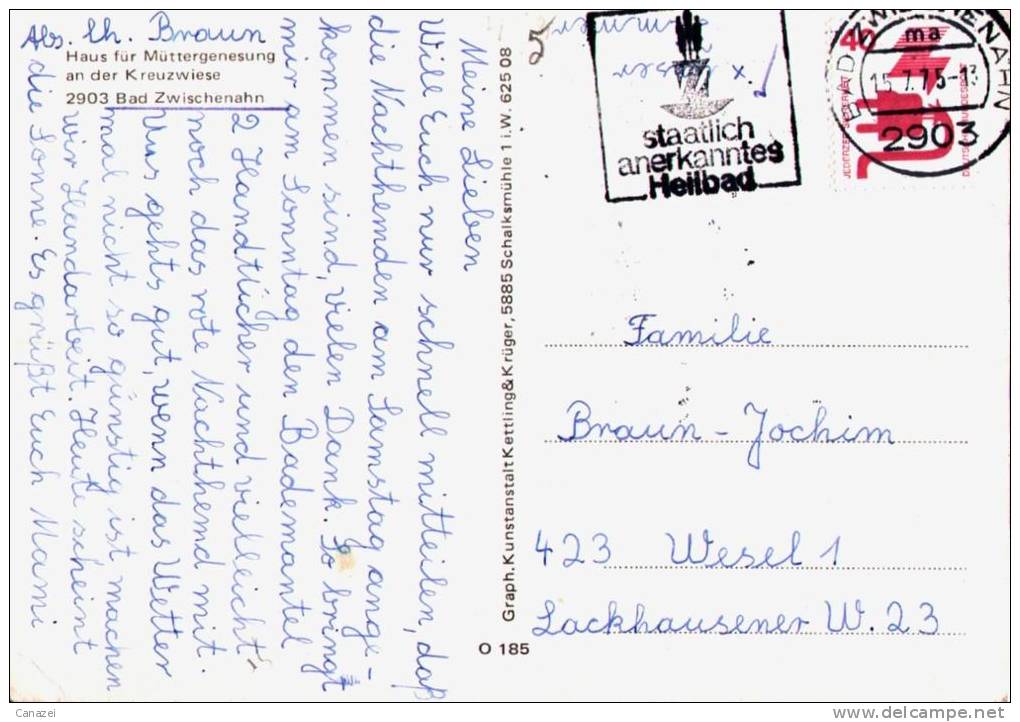 Abs. Ch. Braun
Haus für Müttergenesung
an der Kreuzwiese
2903 Bad Zwischenahn
Meine Lieben
Will Euch nur schnell mitteilen, daß
die Nachthemden am Samstag ange-
kommen sind, vielen Dank. So bringt
mir am Sonntag den Bademantel
2 Handtücher und vielleicht
noch das rote Nachthemd mit.
Uns gehts gut, wenn das Wetter
mal nicht so günstig ist machen
wir Handarbeit. Heute scheint
die Sonne. Es grüßt Euch Mami
Graph. Kunstanstalt Kettling & Krüger, 5885 Schalksmühle 1 i.W. 625 08
O 185
staatlich
anerkanntes
Heilbad
BAD ZWISCHENAHN
ma
15.7.75-13
2903
40
JEDERZEIT SICHERHEIT
DEUTSCHE BUNDESPOST
Familie
Braun-Jochim
423 Wesel 1
Lackhausener W. 23
Canazei
www.delcampe.net